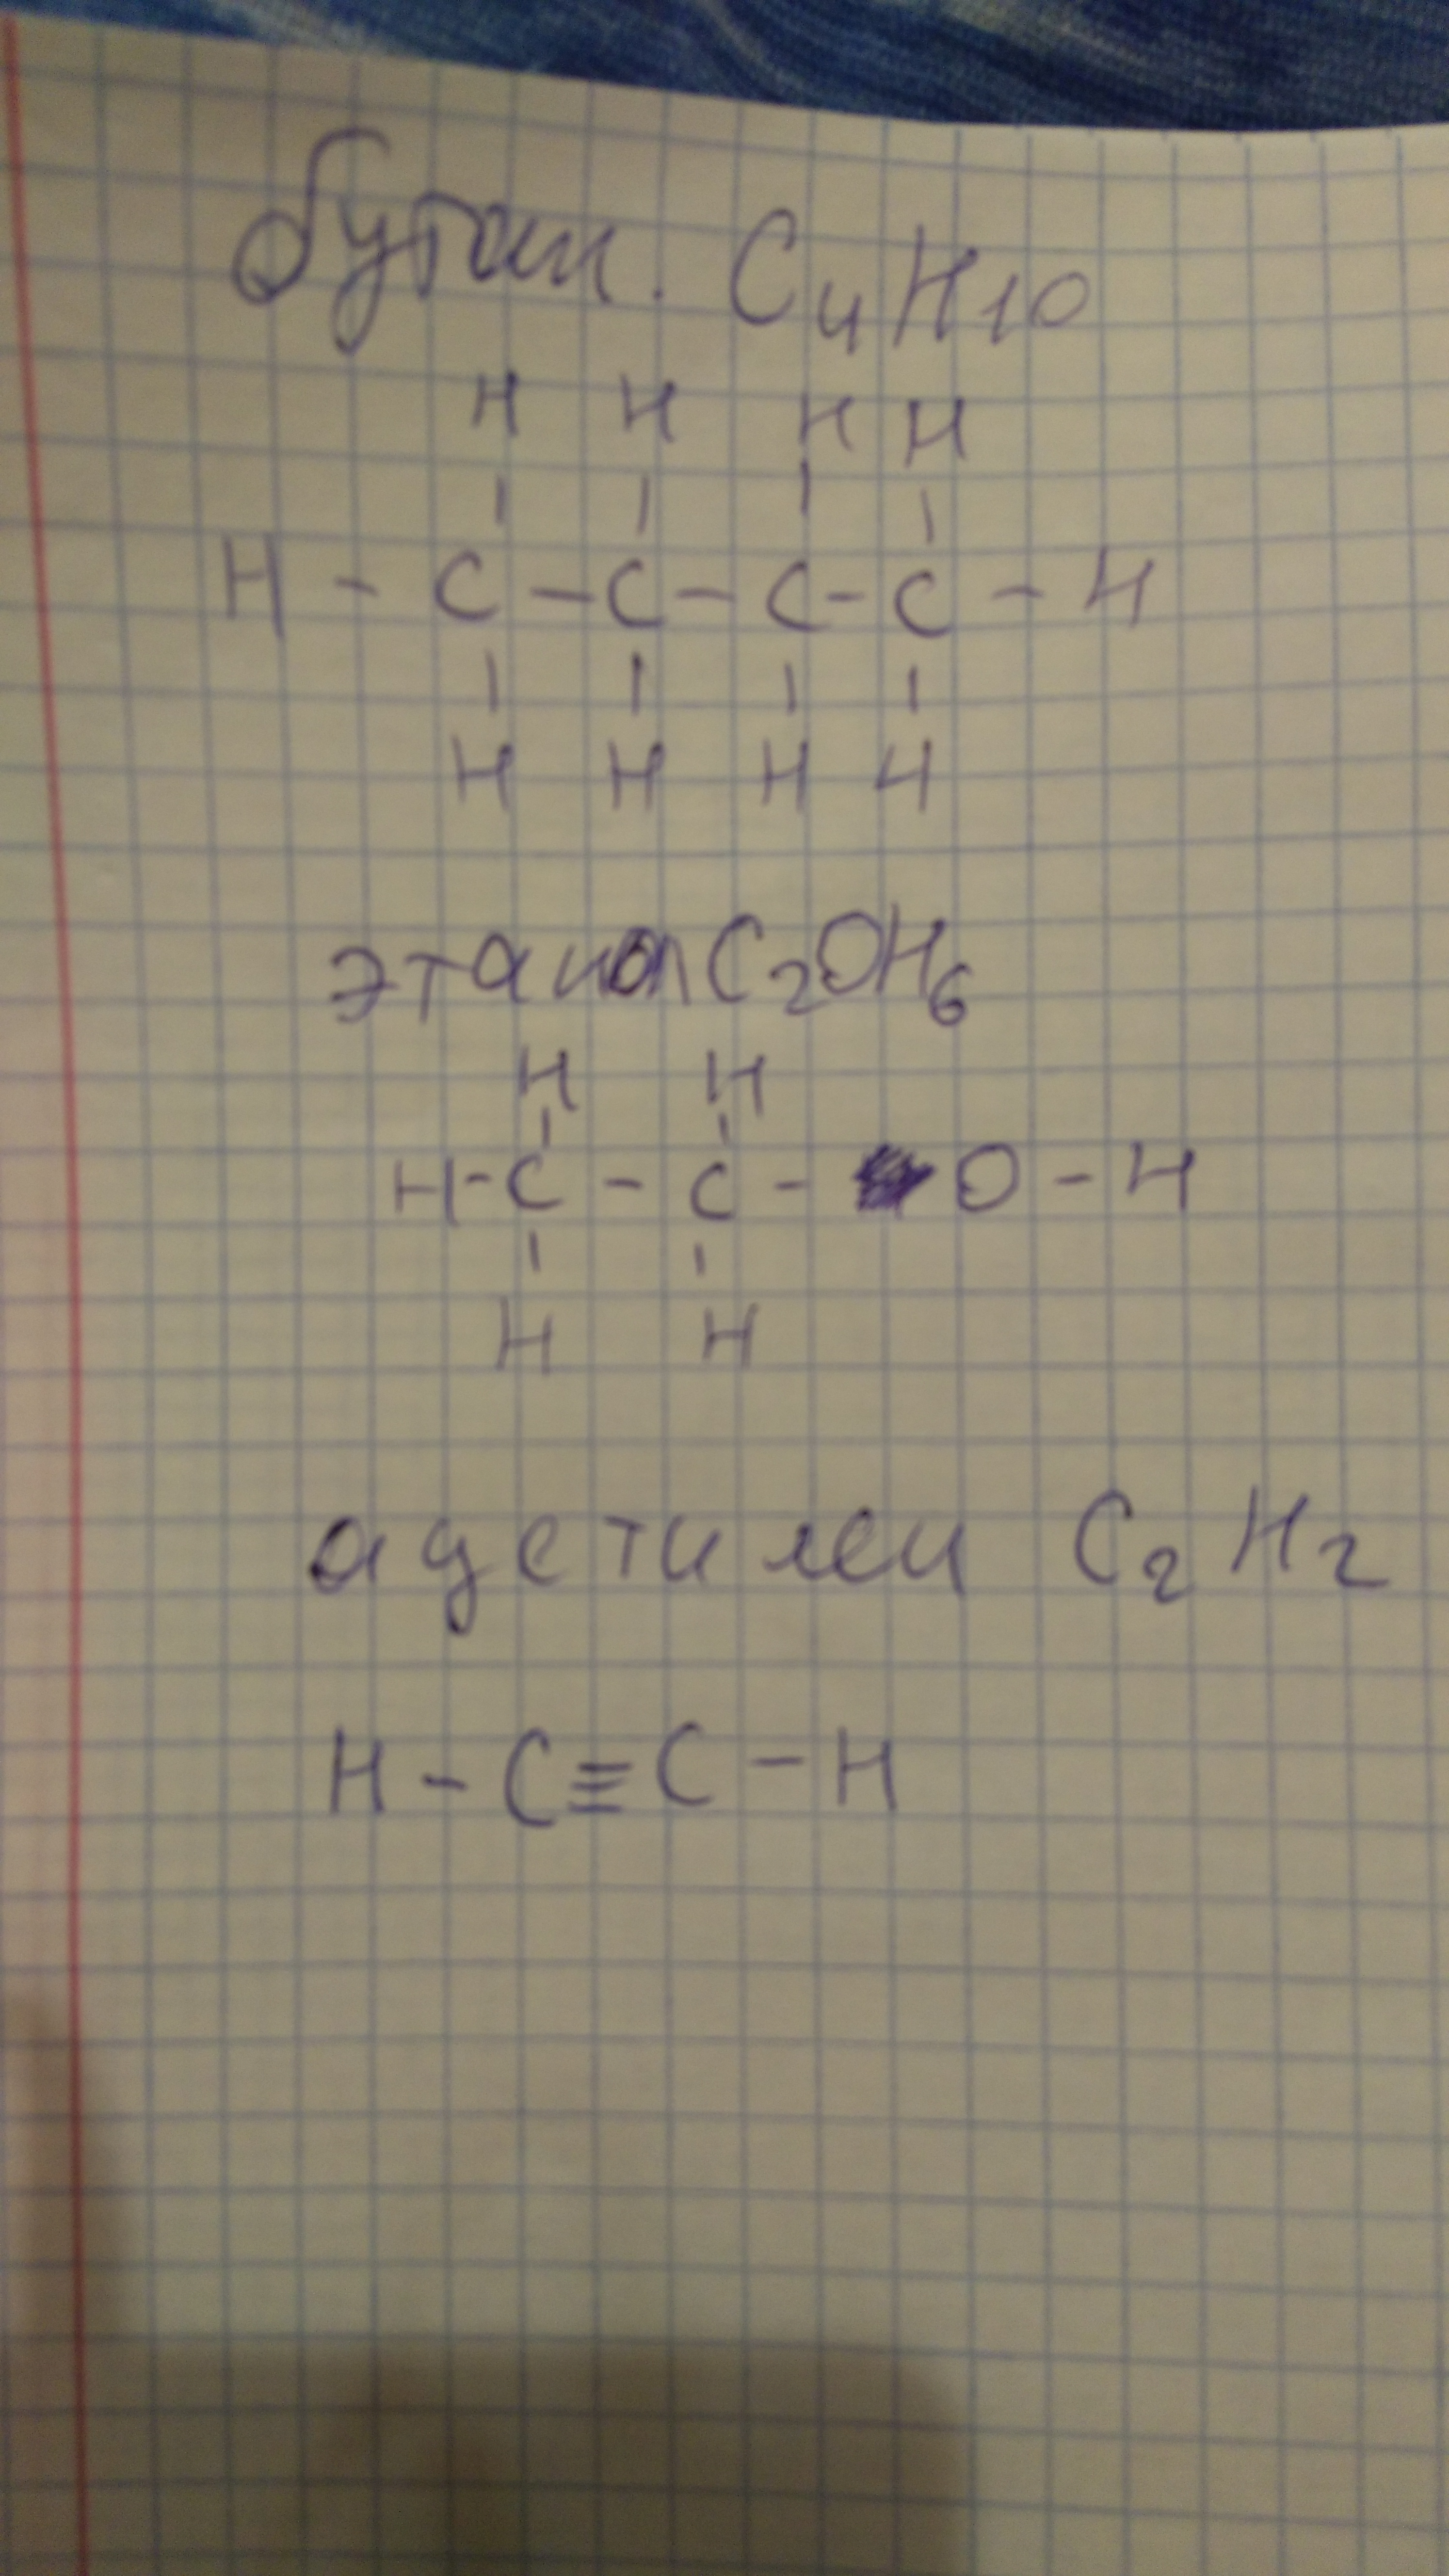 бутан. C4H10
H H H H
| | | |
H - C - C - C - C - H
| | | |
H H H H
этанол C2OH6
H H
| |
H - C - C - O - H
| |
H H
ацетилен C2H2
H - C ≡ C - H